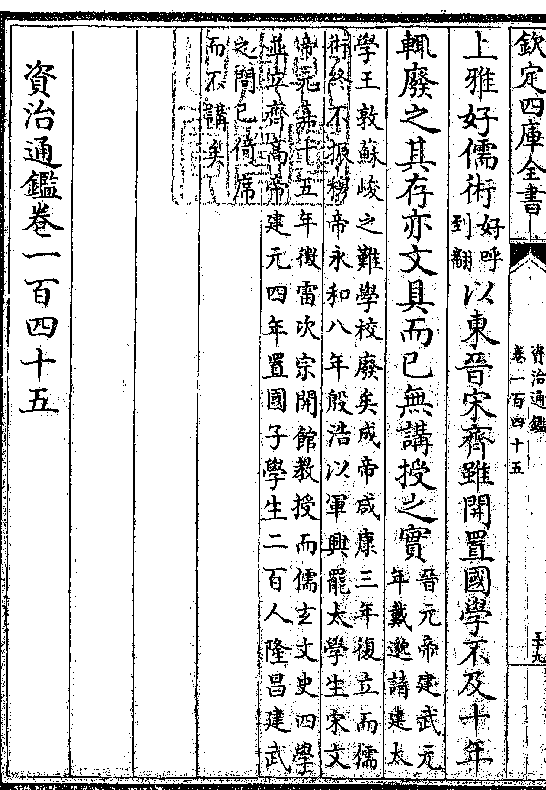 欽定四庫全書
資治通鑑
卷一百四十五
上雅好儒術好呼到翻以東晉宋齊雖開置國學不及十年
輒廢之其存亦文具而已無講授之實晉元帝建武元年戴邈請建太
學王敦蘇峻之難學校廢矣成帝咸康三年復立而儒
術終不振穆帝永和八年殷浩以軍興罷太學生宋文
帝元嘉十五年徵雷次宗開館教授而儒玄文史四學
並立齊高帝建元四年置國子學生二百人隆昌建武
之間已倚席
而不講矣
資治通鑑卷一百四十五